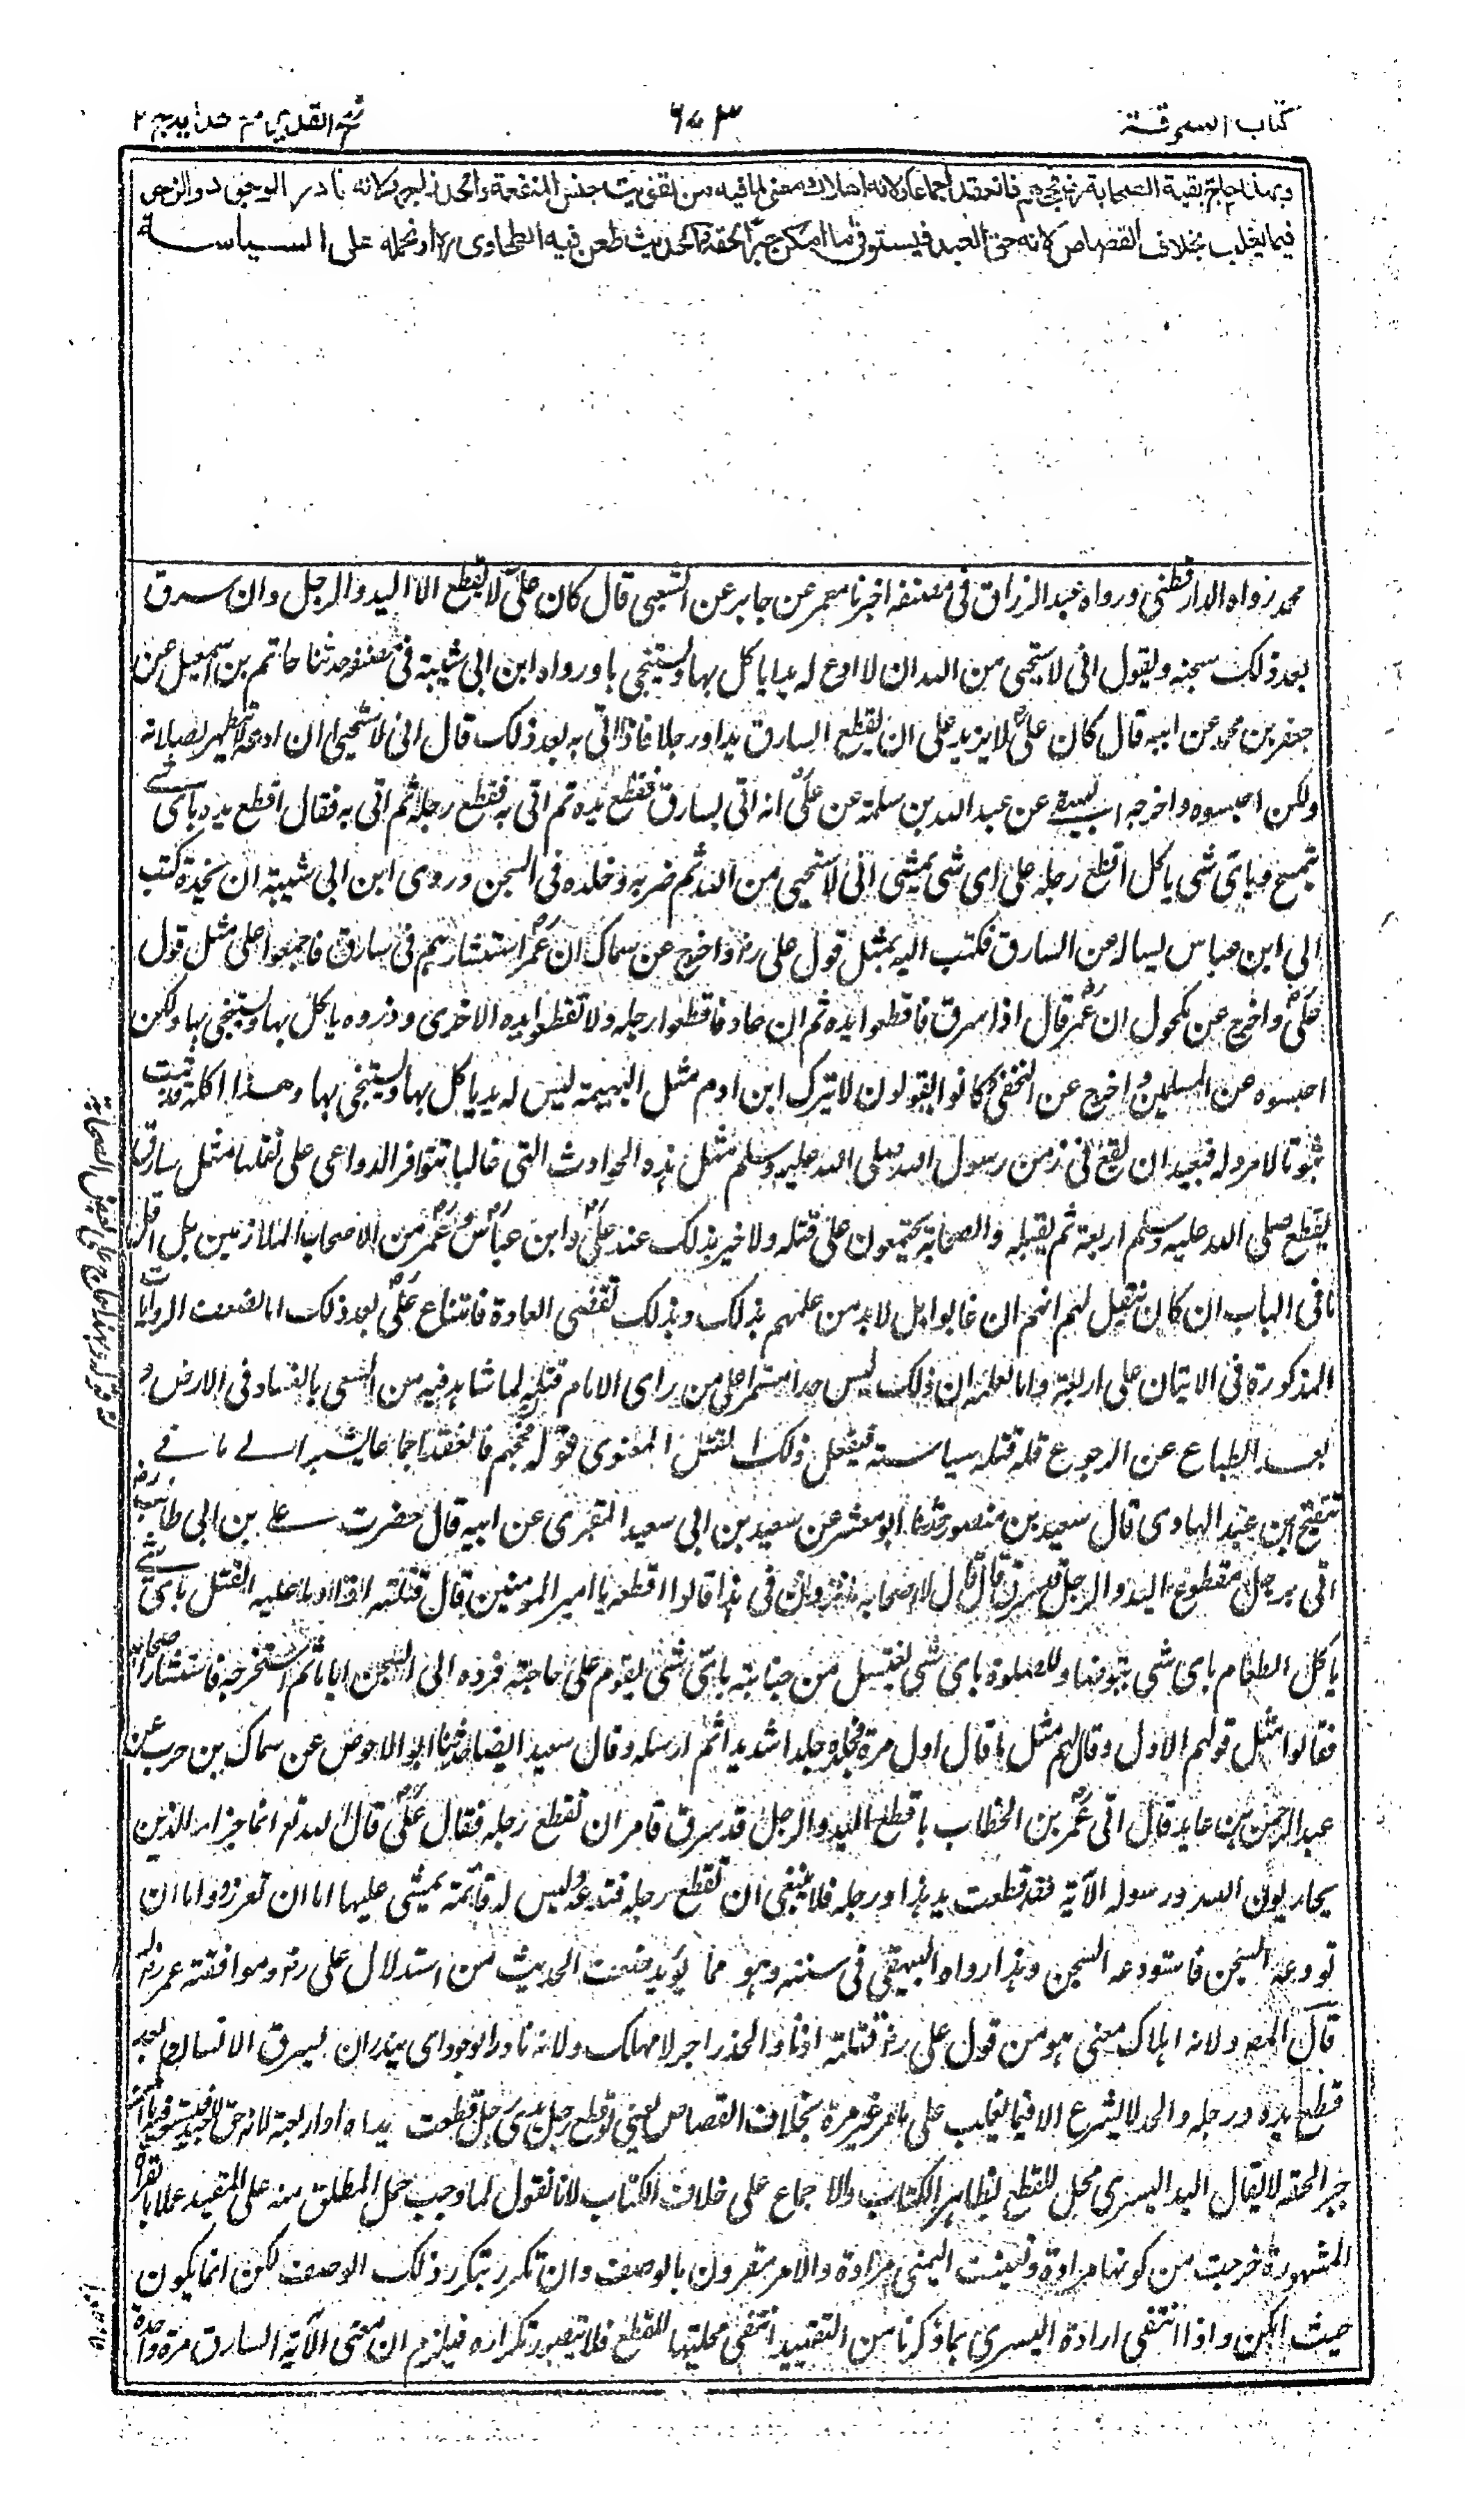 كتاب السرقة
٦٧٣
فتح القدير مع هدايه ج ٢
وبهذا حاج بقية الصحابة رض فحجهم فانعقد اجماعا ولانه اهلاك معنى لما فيه من تفويت جنس المنفعة والحد زاجر ولانه نادر الوجود والزجر
فيما يغلب بخلاف القصاص لانه حق العبد فيستوفى ما امكن جبرا لحقه والحديث طعن فيه الطحاوى رح او نحمله على السياسة
محمد رواه الدارقطنى ورواه عبد الرزاق فى مصنفه اخبرنا معمر عن جابر عن الشعبى قال كان على لا يقطع الا اليد والرجل وان سرق
بعد ذلك سجنه ويقول انى لاستحيى من الله ان لا ادع له يدا ياكل بها ويستنجى بها ورواه ابن ابى شيبة فى مصنفه حدثنا حاتم بن اسمعيل عن
جعفر بن محمد عن ابيه قال كان على لا يزيد على ان يقطع السارق يدا ورجلا فاذا اتى به بعد ذلك قال انى لاستحيى ان ادعه لا يتطهر لصلاته
ولكن احبسوه واخرجه البيهقى عن عبد الله بن سلمة عن على انه اتى بسارق فقطع يده ثم اتى به فقطع رجله ثم اتى به فقال اقطع يده باى شئ
يتمسح وباى شى ياكل اقطع رجله على اى شى يمشى انى لاستحيى من الله ثم ضربه وخلده فى السجن وروى ابن ابى شيبة ان نجدة كتب
الى ابن عباس يساله عن السارق فكتب اليه بمثل قول على رض واخرج عن سماك ان عمر استشارهم فى سارق فاجمعوا على مثل قول
على واخرج عن مكحول ان عمر قال اذا سرق فاقطعوا يده ثم ان عاد فاقطعوا رجله ولا تقطعوا يده الاخرى وذروه ياكل بها ويستنجى بها ولكن
احبسوه عن المسلمين واخرج عن النخعى كانوا يقولون لا يترك ابن ادم مثل البهيمة ليس له يد ياكل بها ويستنجى بها وهذا كله قد ثبت
ثبوتا لا مرد له فبعيد ان يقع فى زمن رسول الله صلى الله عليه وسلم مثل هذه الحوادث التى غالبا تتوافر الدواعى على نقلها مثل سارق
يقطع صلى الله عليه وسلم اربعته ثم يقتله والصحابة يجتمعون على قتله ولا خبر بذلك عند على وابن عباس وعمر من الاصحاب الملازمين بل اقل
ما فى الباب ان كان ينقل لهم انهم ان غابوا بل لا بد من علمهم بذلك وبذلك تقضى العادة فامتناع على بعد ذلك اما لضعف الروايات
المذكورة فى الاتيان على اربعته واما لعلمه ان ذلك ليس حدا مستمرا بل من راى الامام قتله لما شاهد فيه من السعى بالفساد فى الارض و
بعد الطباع عن الرجوع فله قتله سياسة فيفعل ذلك القتل المعنوى قوله فحجهم فانعقد اجماعا يشير الى ما فى
تنقيح ابن عبد الهادى قال سعيد بن منصور حدثنا ابو معشر عن سعيد بن ابى سعيد المقبرى عن ابيه قال حضرت على بن ابى طالب رض
اتى برجل مقطوع اليد والرجل قد سرق فقال لاصحابه ما ترون فى هذا قالوا اقطعه يا امير المومنين قال قتلته اذا وما عليه القتل باى شئ
ياكل الطعام باى شى يتوضأ للصلوة باى شى يغتسل من جنابته باى شى يقوم على حاجته فرده الى السجن اياما ثم استخرجه فاستشار اصحابه
فقالوا مثل قولهم الاول وقال لهم مثل ما قال اول مرة فجلده جلدا شديدا ثم ارسله وقال سعيد ايضا حدثنا ابو الاحوص عن سماك بن حرب عن
عبد الرحمن بن عايد قال اتى عمر بن الخطاب باقطع اليد والرجل قد سرق فامر ان تقطع رجله فقال على قال الله تع انما جزاء الذين
يحاربون الله ورسوله الآية فقد قطعت يد هذا ورجله فلا ينبغى ان تقطع رجله فتدعه ليس له قائمة يمشى عليها اما ان تعزره واما ان
تودعه السجن فاستودعه السجن وهذا رواه البيهقى فى سننه وهو مما يؤيد ضعف الحديث من استدلال على رض وموافقته عمر رض له
قال المص ولانه اهلاك معنى هو من قول على رض قتلته اذا والحد زاجر لا مهلك ولانه نادر الوجود اى يندر ان يسرق الانسان بعد
قطع يده ورجله والحد لا يشرع الا فيما يغلب على ما مر غير مرة بخلاف القصاص يعنى لو قطع رجل يدى رجل قطعت يداه او اربعته لانه حق العبد فيستوفيه ما امكن
جبرا لحقه لا يقال اليد اليسرى محل للقطع بظاهر الكتاب والاجماع على خلاف الكتاب لانا نقول لما وجب حمل المطلق منه على المقيد عملا بالقراءة
المشهورة خرجت من كونها مرادة وتعينت اليمنى مرادة والامر المقرون بالوصف وان تكرر بتكرر ذلك الوصف لكن انما يكون
حيث امكن واذا انتفى ارادة اليسرى بما ذكرنا من التقييد انتفى محليتها للقطع فلا يتصور تكراره فيلزم ان معنى الآية السارق مرة واحدة